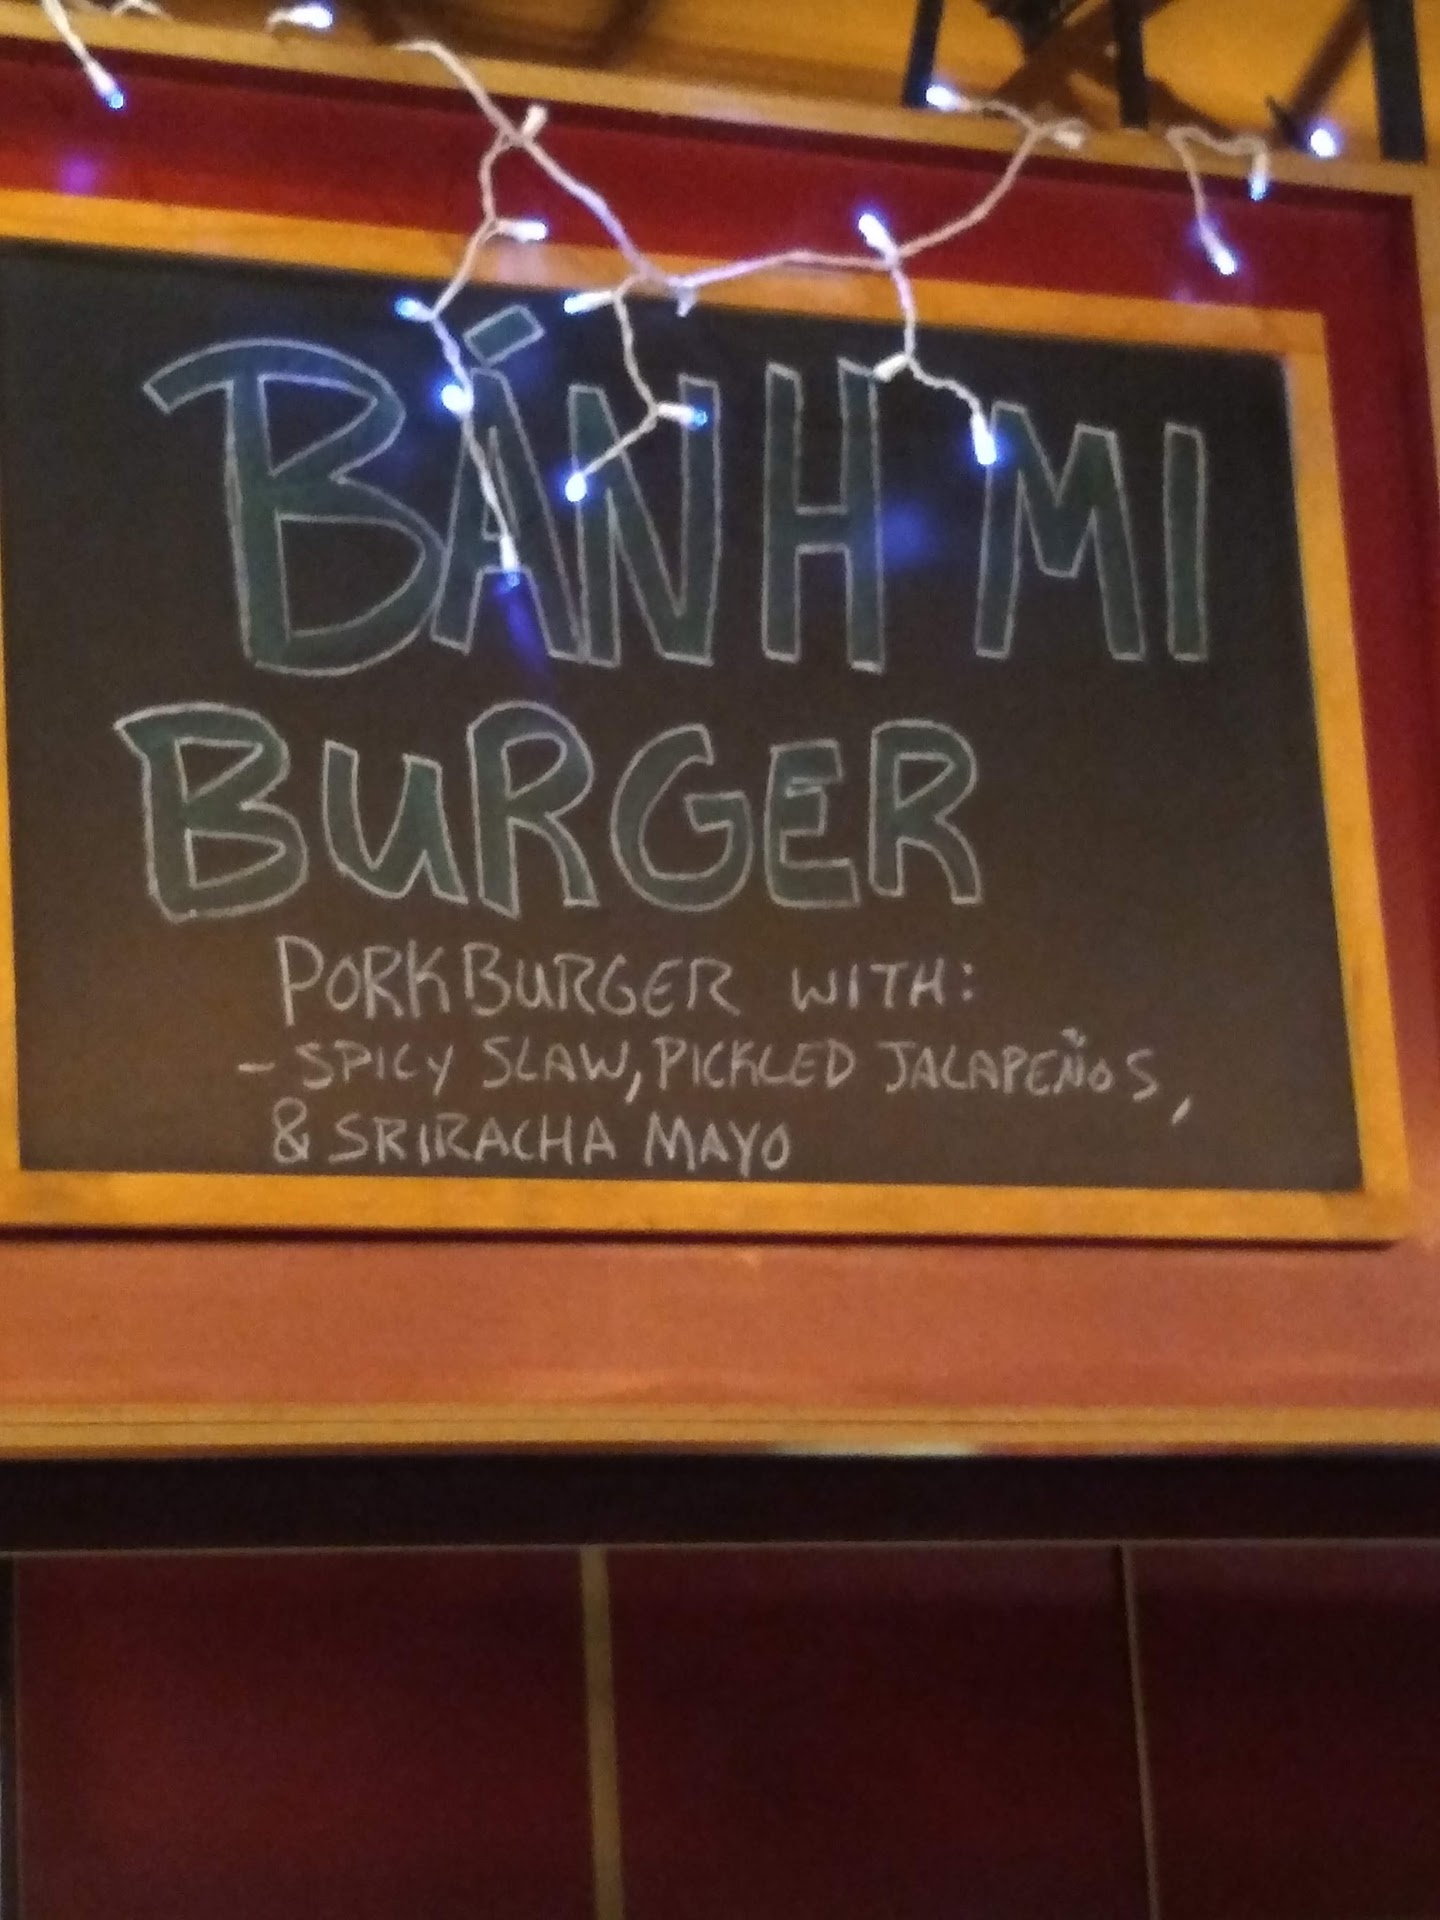 BÁNH MI
BURGER
PORK BURGER WITH:
- SPICY SLAW, PICKLED JALAPEÑOS,
& SRIRACHA MAYO